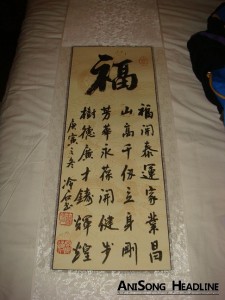 福
福開泰運家業昌
山高千仞立身剛
芳華永葆開健步
樹德廣才鑄輝煌
庚寅之冬
AniSong Headline